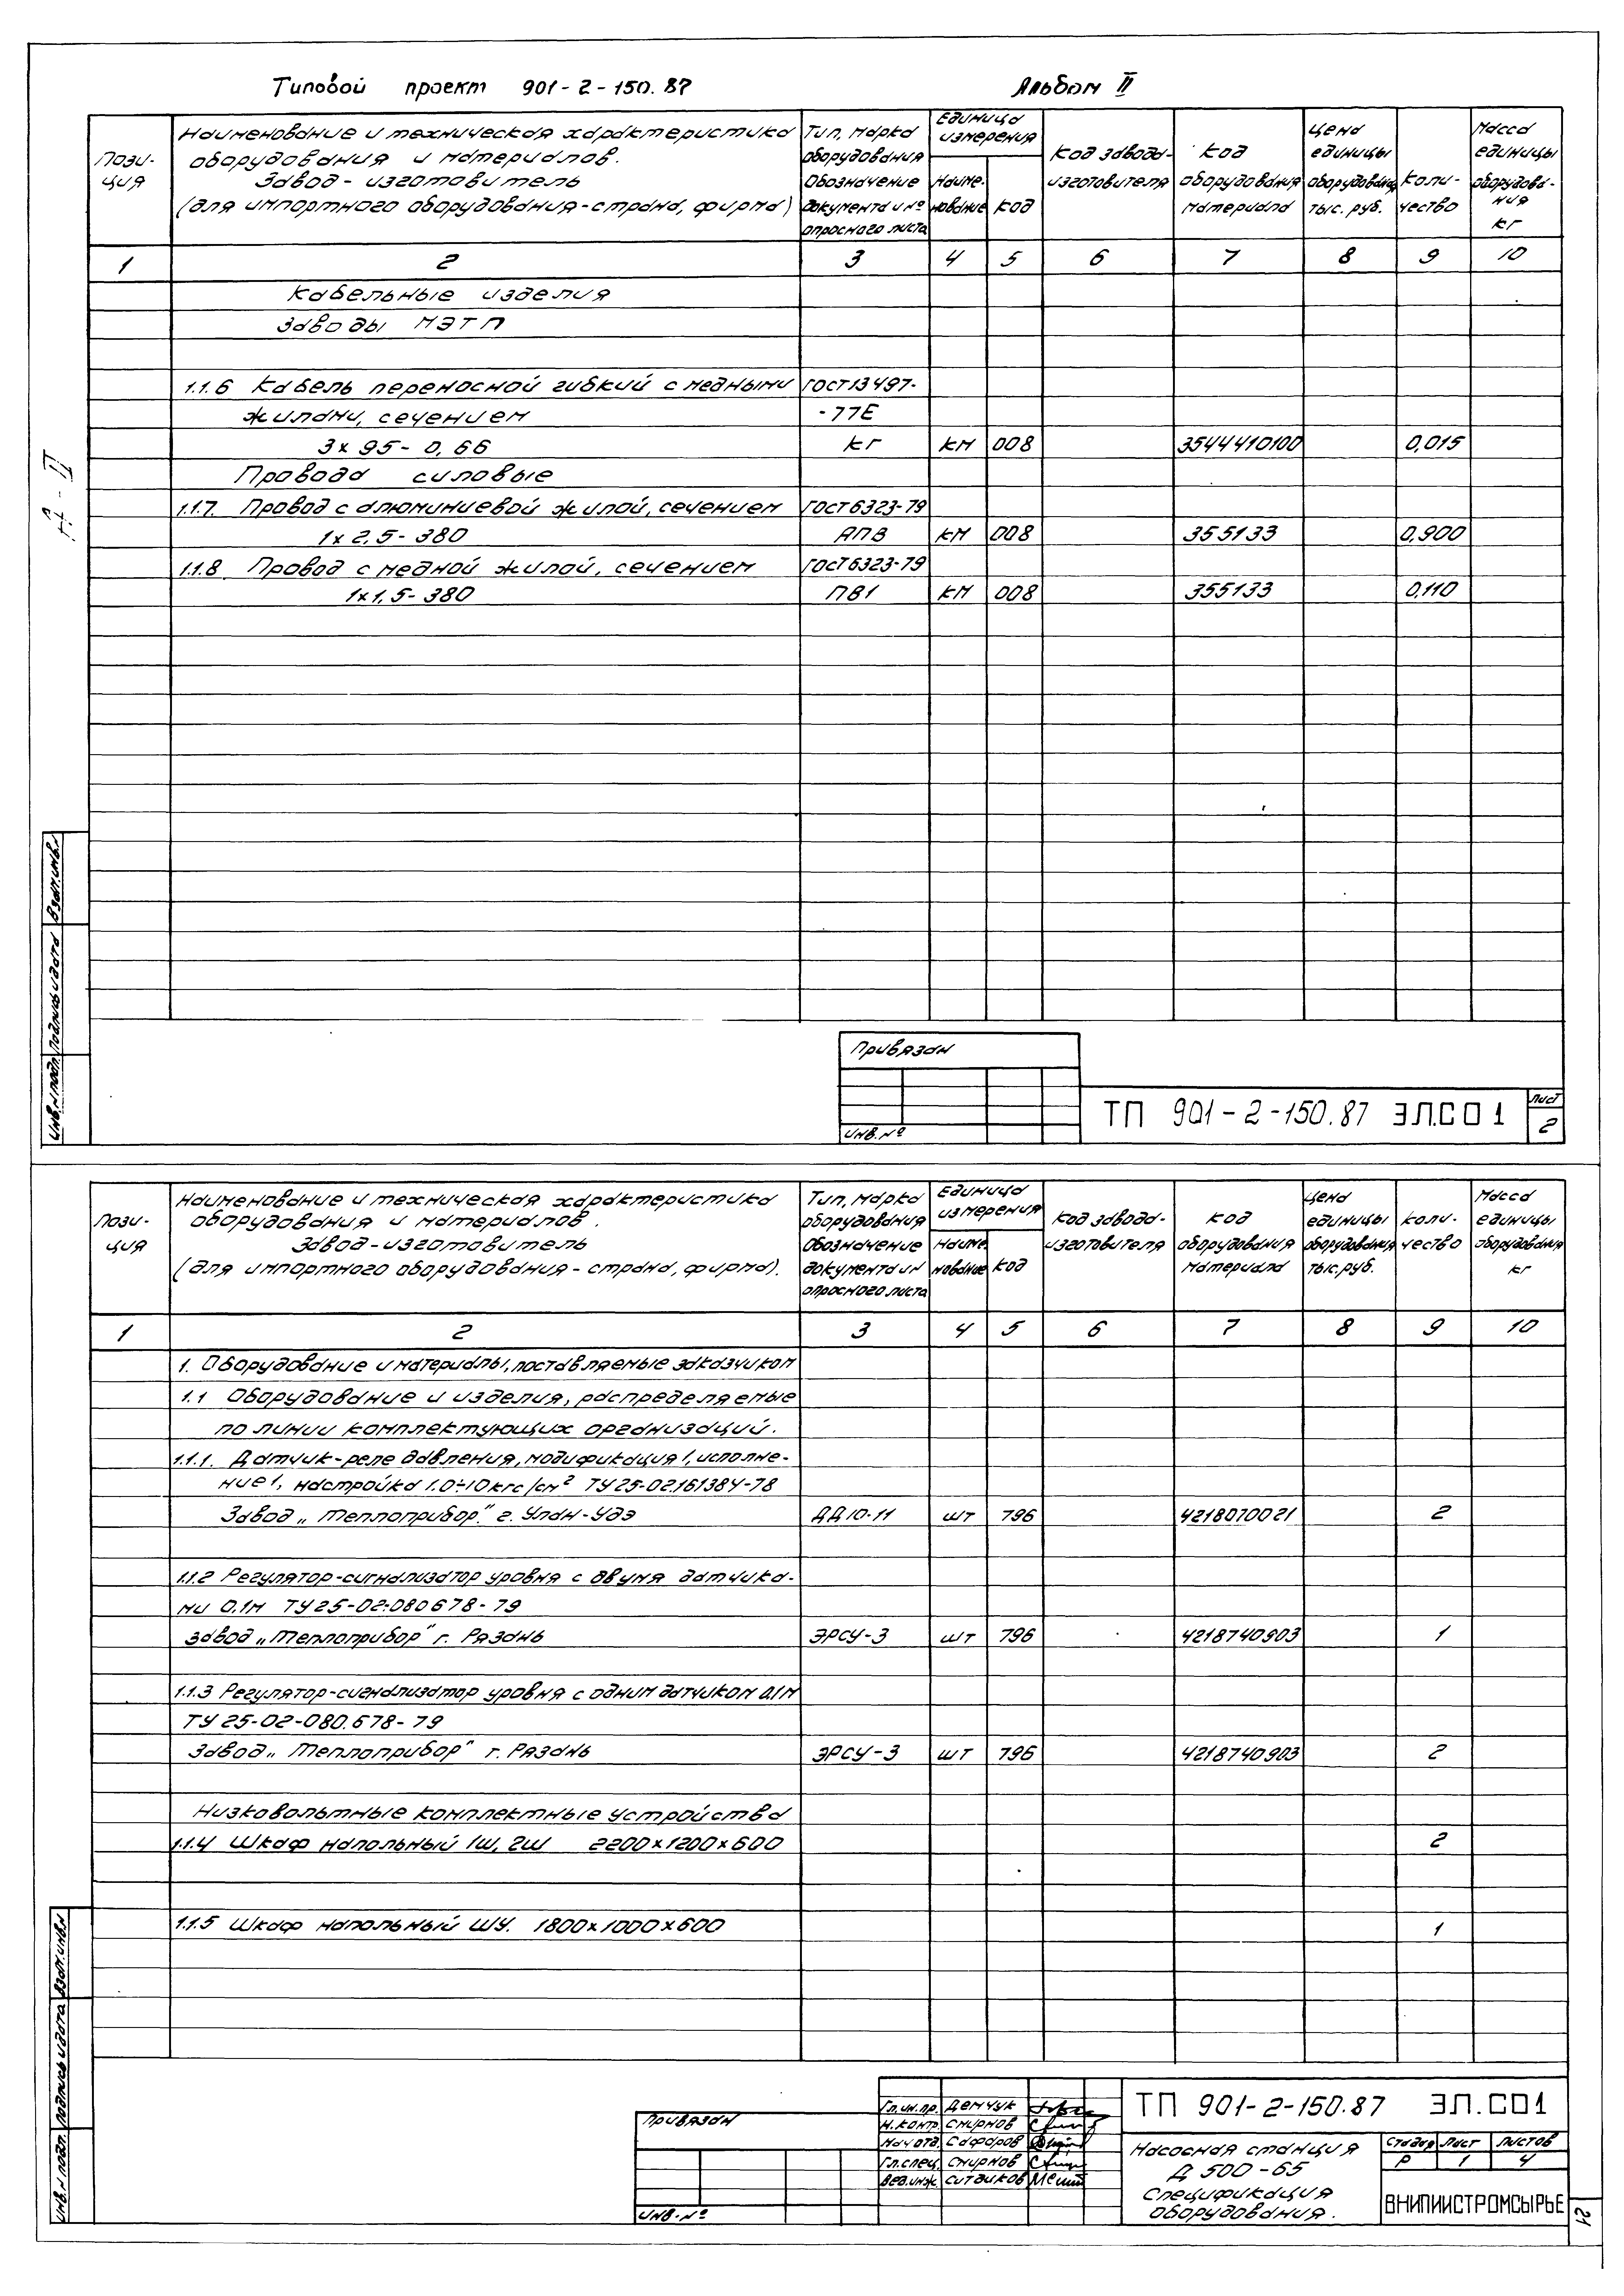 Типовой проект 901-2-150.87 Альбом II
Пози-
ция
Наименование и техническая характеристика
оборудования и материалов.
Завод-изготовитель
(для импортного оборудования-страна, фирма)
Тип, марка
оборудования
Обозначение
документа и №
опросного листа
Единица
измерения
Наиме-
нование
код
код завода-
изготовителя
код
оборудования
материала
цена
единицы
оборудования
тыс. руб.
коли-
чество
Масса
единицы
оборудова-
ния
кг
1 2 3 4 5 6 7 8 9 10
Кабельные изделия
Заводы МЭТП
1.1.6 Кабель переносной гибкий с медными ГОСТ13497-
жилами, сечением -77Е
3х95-0,66 КГ КМ 008 3544410100 0,015
Провода силовые
1.1.7. Провод с алюминиевой жилой, сечением ГОСТ6323-79
1х2,5-380 АПВ КМ 008 355133 0,900
1.1.8 Провод с медной жилой, сечением ГОСТ6323-79
1х1,5-380 ПВ1 КМ 008 355133 0,110
А-II
Взам.инв.№
Подпись и дата
Инв.№ подл.
Привязан
Инв.№
ТП 901-2-150.87 ЭЛ.СО1
Лист
2
Пози-
ция
Наименование и техническая характеристика
оборудования и материалов.
Завод-изготовитель
(для импортного оборудования-страна, фирма).
Тип, марка
оборудования
Обозначение
документа и №
опросного листа
Единица
измерения
Наиме
нование
код
код завода-
изготовителя
код
оборудования
материала
цена
единицы
оборудования
тыс.руб.
коли-
чество
Масса
единицы
оборудования
кг
1 2 3 4 5 6 7 8 9 10
1. Оборудование и материалы, поставляемые заказчиком
1.1 Оборудование и изделия, распределяемые
по линии комплектующих организаций.
1.1.1. Датчик-реле давления, модификация 1, исполне-
ние 1, настройка 1.0÷10кгс/см² ТУ25-02.161384-78
Завод „Теплоприбор." г. Улан-Удэ ДД10-11 шт 796 4218070021 2
1.1.2 Регулятор-сигнализатор уровня с двумя датчика-
ми 0.1м ТУ25-02.080678-79
завод „Теплоприбор" г. Рязань ЭРСУ-3 шт 796 4218740903 1
1.1.3 Регулятор-сигнализатор уровня с одним датчиком 0.1м
ТУ25-02-080.678-79
Завод „Теплоприбор" г. Рязань ЭРСУ-3 шт 796 4218740903 2
Низковольтные комплектные устройства
1.1.4 Шкаф напольный 1Ш, 2Ш 2200х1200х600 2
1.1.5 Шкаф напольный ШУ. 1800х1000х600 1
Взам.инв.№
Подпись и дата
Инв.№ подл.
Привязан
Инв.№
Гл.ин.пр. Демчук
Н.контр. Смирнов
Нач отд. Сафаров
Гл.спец. Смирнов
Вед.инж. Ситаиков
ТП 901-2-150.87 ЭЛ.СО1
Насосная станция
Д 500-65
Спецификация
оборудования.
Стадия Лист Листов
Р 1 4
ВНИПИИСТРОМСЫРЬЕ
21